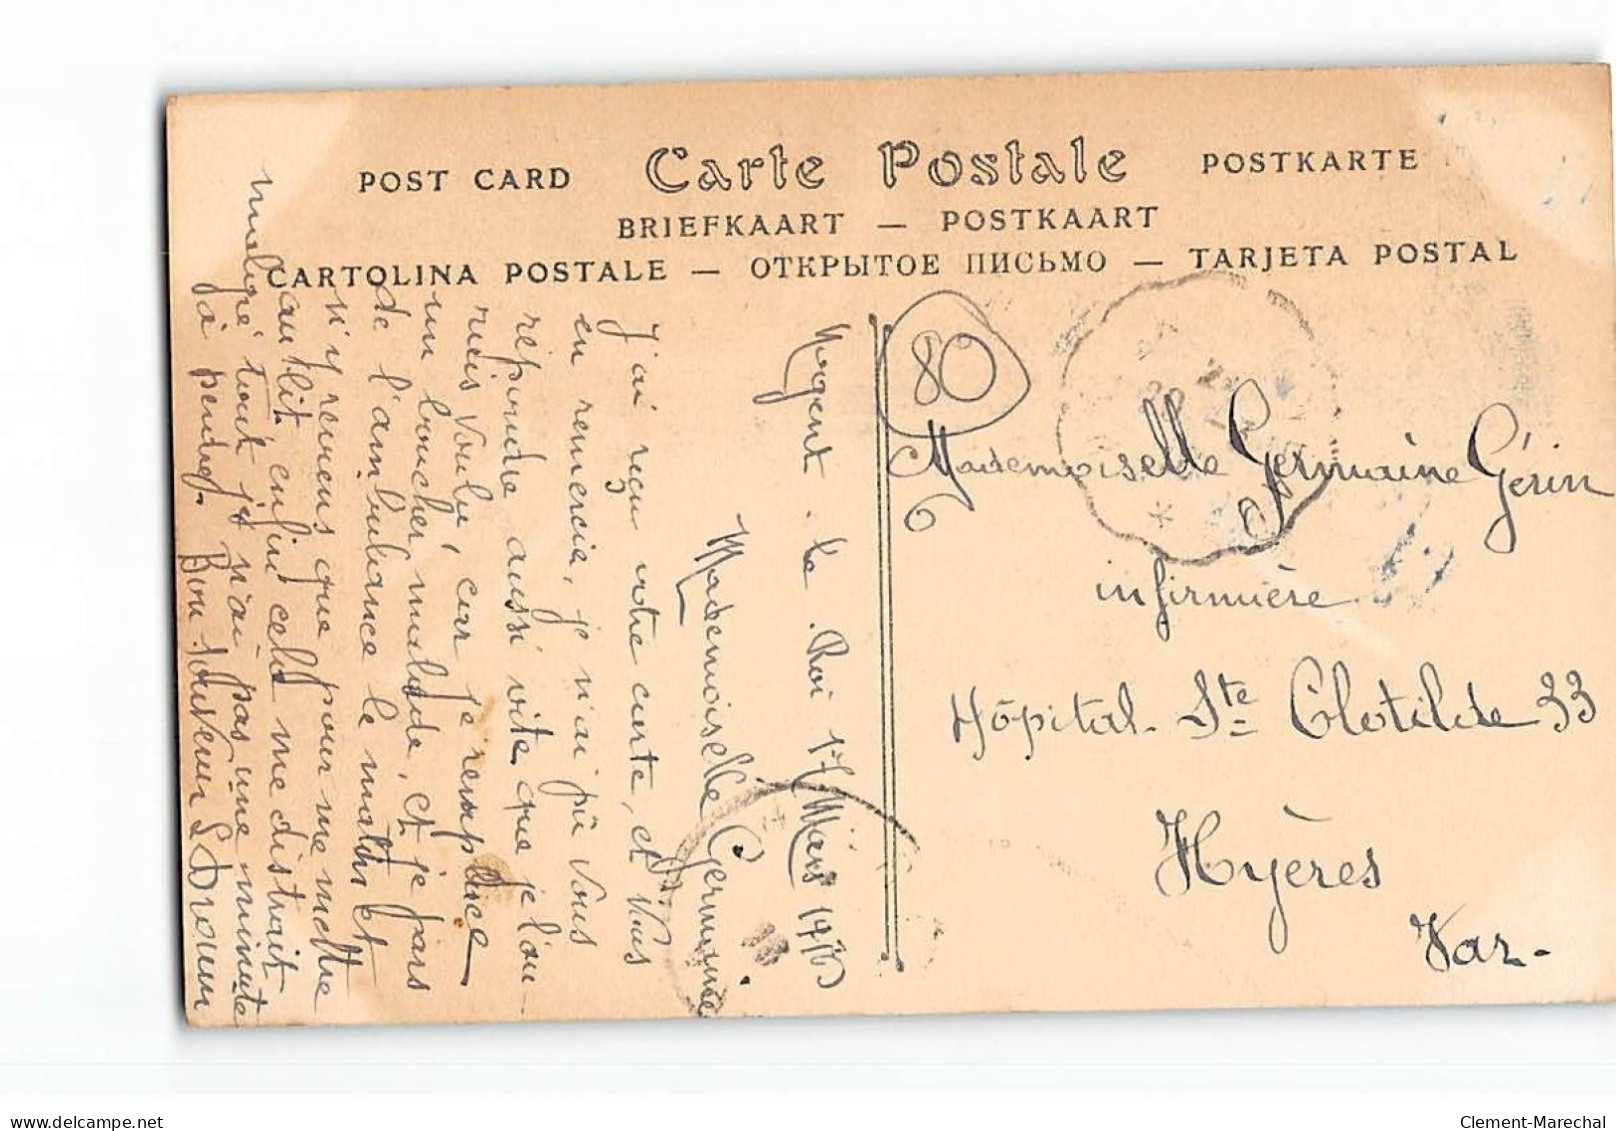 POST CARD Carte Postale POSTKARTE
BRIEFKAART — POSTKAART
CARTOLINA POSTALE — ОТКРЫТОЕ ПИСЬМО — TARJETA POSTAL
80
Nogent-le-Roi 17 Mars
Mademoiselle Germaine
J'ai reçu votre carte, et vous
en remercie, je n'ai pû vous
répondre aussi vite que je l'au-
rais voulu, car je remplace
un boucher malade, et je pars
de l'ambulance le matin et
n'y reviens que pour me mettre
au lit enfin cela me distrait
malgré tout je n'ai pas une minute
à perdre. Bon souvenir
Mademoiselle Germaine Gérin
infirmière
Hôpital Ste Clotilde 33
Hyères
Var-
delcampe.net
Clement-Marechal